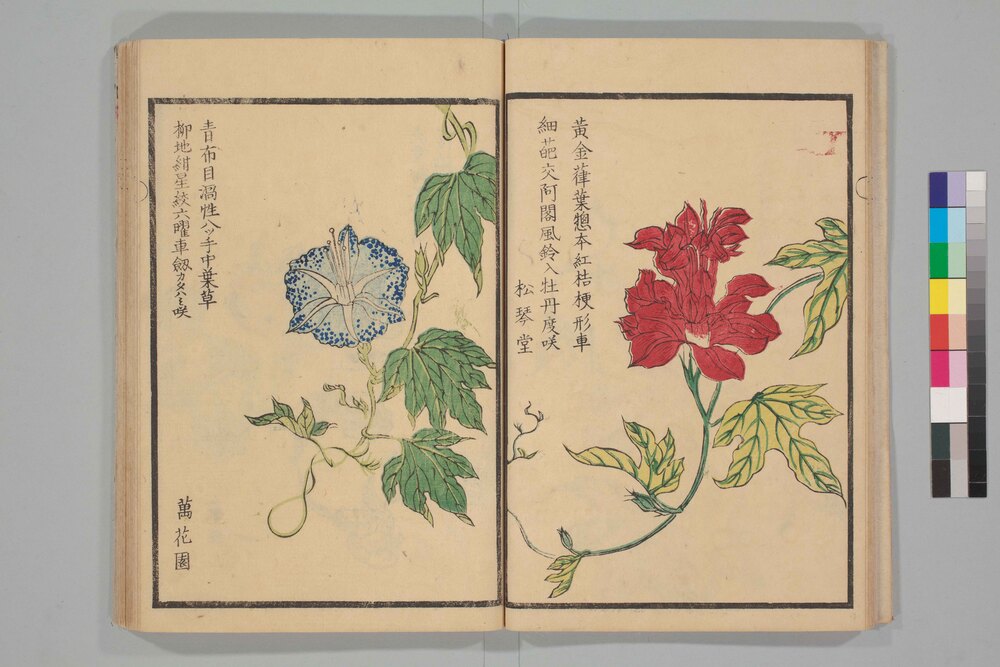 黃金葎葉惣本紅桔梗形車
細葩交阿閣風鈴入牡丹度咲
松琴堂
青布目渦性八ッ手中葉草
柳地紺星絞六曜車劔カタハミ咲
萬花園